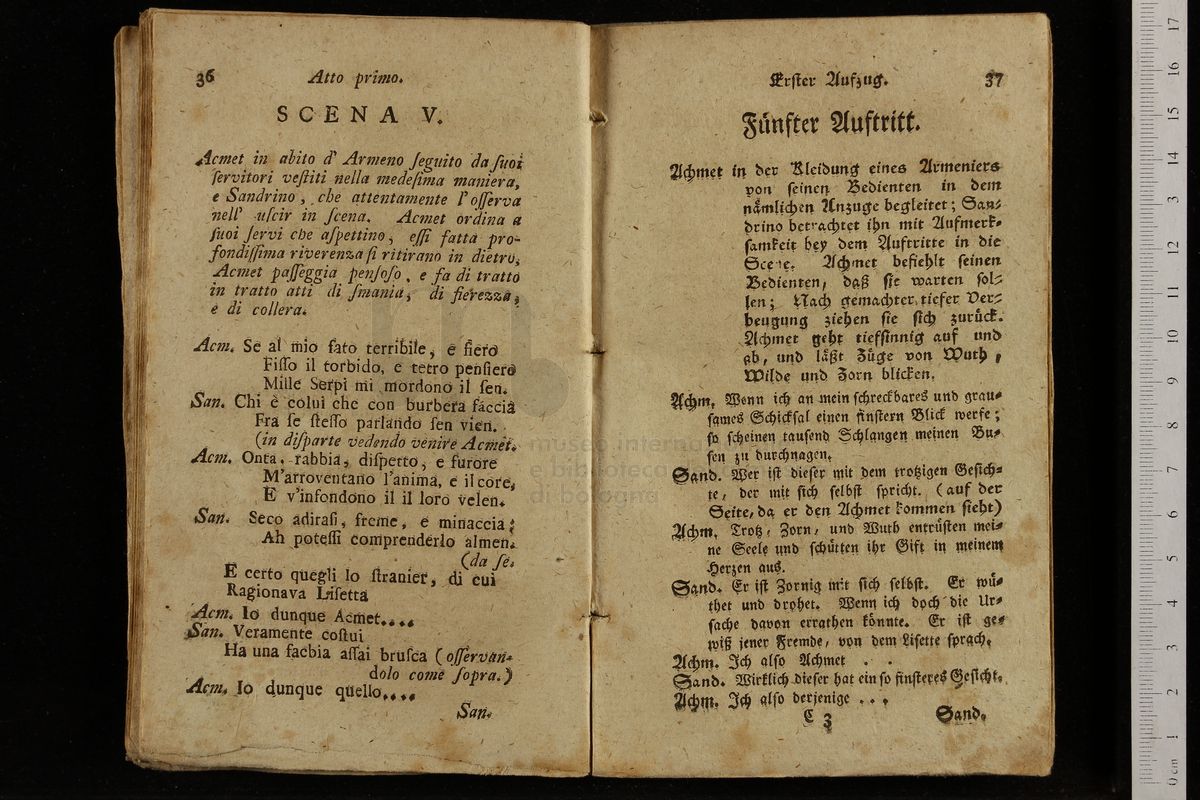 36
Atto primo.
SCENA V.
Acmet in abito d' Armeno ſeguito da ſuoi
ſervitori veſtiti nella medeſima maniera,
e Sandrino, che attentamente l'oſſerva
nell' uſcir in ſcena. Acmet ordina a
ſuoi ſervi che aſpettino, eſſi fatta pro-
fondiſſima riverenza ſi ritirano in dietro,
Acmet paſſeggia penſoſo, e fa di tratto
in tratto atti di ſmania, di fierezza,
e di collera.
Acm. Se al mio fato terribile, e fiero
Fiſſo il torbido, e tetro penſiero
Mille Serpi mi mordono il ſen.
San. Chi è colui che con burbera faccia
Fra ſe ſteſſo parlando ſen vien.
(in diſparte vedendo venire Acmet.
Acm. Onta, rabbia, diſpetto, e furore
M'arroventano l'anima, e il core,
E v'infondono il il loro velen.
San. Seco adiraſi, freme, e minaccia;
Ah poteſſi comprenderlo almen.
(da ſe.
E certo quegli lo ſtranier, di cui
Ragionava Liſetta
Acm. Io dunque Acmet....
San. Veramente coſtui
Ha una facbia aſſai bruſca (oſſervan-
dolo come ſopra.)
Acm. Io dunque quello....
San.
Erſter Aufzug.
37
Fünfter Auftritt.
Achmet in der Kleidung eines Armeniers
von ſeinen Bedienten in dem
nämlichen Anzuge begleitet; San-
drino betrachtet ihn mit Aufmerk-
ſamkeit bey dem Auftritte in die
Scene. Achmet befiehlt ſeinen
Bedienten, daß ſie warten ſol-
len; Nach gemachter tiefer Ver-
beugung ziehen ſie ſich zurück.
Achmet geht tiefſinnig auf und
ab, und läßt Züge von Wuth,
Wilde und Zorn blicken.
Achm. Wenn ich an mein ſchreckbares und grau-
ſames Schickſal einen finſtern Blick werfe;
ſo ſcheinen tauſend Schlangen meinen Bu-
ſen zu durchnagen.
Sand. Wer iſt dieſer mit dem trotzigen Geſich-
te, der mit ſich ſelbſt ſpricht. (auf der
Seite, da er den Achmet kommen ſieht)
Achm. Trotz, Zorn, und Wuth entrüſten mei-
ne Seele und ſchütten ihr Gift in meinem
Herzen aus.
Sand. Er iſt Zornig mit ſich ſelbſt. Er wü-
thet und drohet. Wenn ich doch die Ur-
ſache davon errathen könnte. Er iſt ge-
wiß jener Fremde, von dem Liſette ſprach.
Achm. Ich alſo Achmet . .
Sand. Wirklich dieſer hat ein ſo finſteres Geſicht.
Achm. Ich alſo derjenige . . .
C 3
Sand.